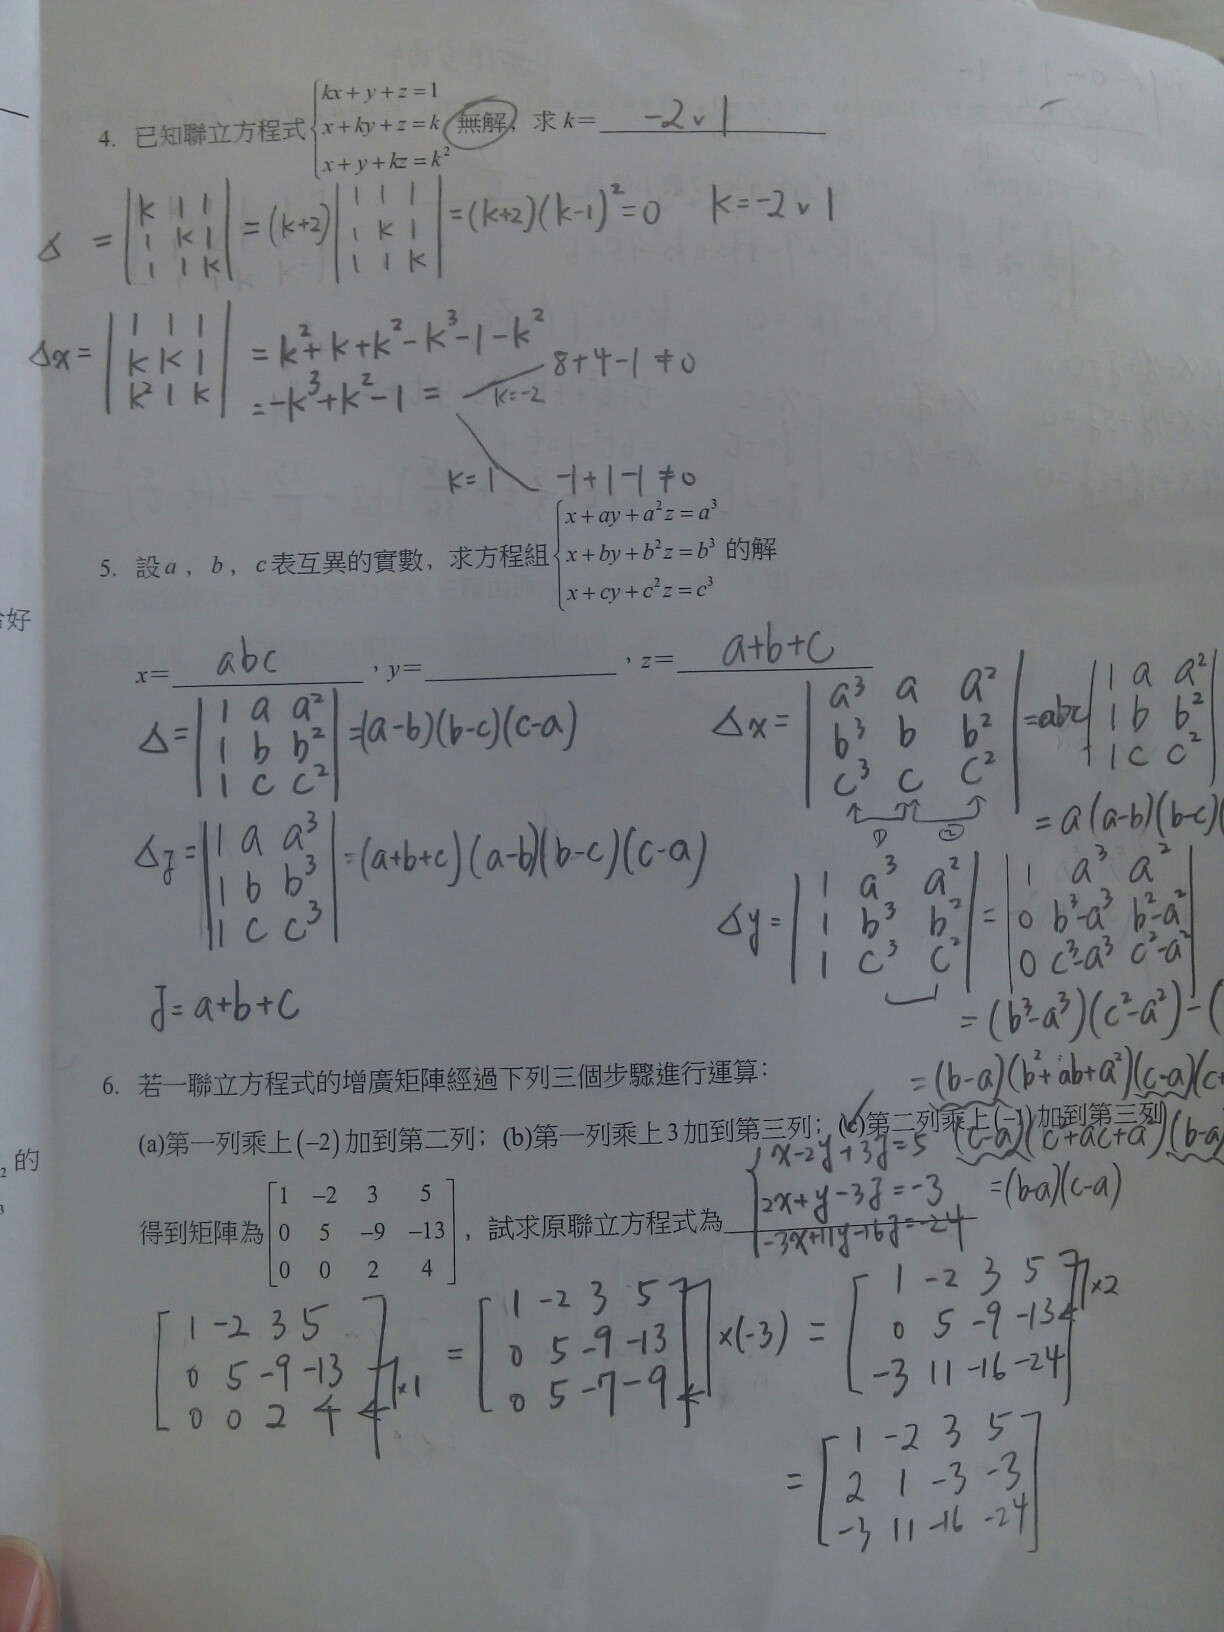 4. 已知聯立方程式{kx+y+z=1
x+ky+z=k
x+y+kz=k² 無解，求k= -2∨1
Δ = |k 1 1
1 k 1
1 1 k| = (k+2)|1 1 1
1 k 1
1 1 k| = (k+2)(k-1)²=0 k=-2∨1
Δx = |1 1 1
k k 1
k² 1 k| = k²+k+k²-k³-1-k²
= -k³+k²-1 =
k=-2 8+4-1≠0
k=1 -1+1-1≠0
5. 設a，b，c表互異的實數，求方程組{x+ay+a²z=a³
x+by+b²z=b³
x+cy+c²z=c³ 的解
x= abc ，y= ，z= a+b+c
Δ=|1 a a²
1 b b²
1 c c²| =(a-b)(b-c)(c-a)
Δx=|a³ a a²
b³ b b²
c³ c c²| =abc|1 a a²
1 b b²
1 c c²|
① ②
=a(a-b)(b-c)(
Δz=|1 a a³
1 b b³
1 c c³| =(a+b+c)(a-b)(b-c)(c-a)
Δy=|1 a³ a²
1 b³ b²
1 c³ c²| = |1 a³ a²
0 b³-a³ b²-a²
0 c³-a³ c²-a²|
z=a+b+c
=(b³-a³)(c²-a²)-(
=(b-a)(b²+ab+a²)(c-a)(c+
(c-a)(c²+ac+a²)(b-a)
=(b-a)(c-a)
6. 若一聯立方程式的增廣矩陣經過下列三個步驟進行運算：
(a)第一列乘上(-2)加到第二列；(b)第一列乘上3加到第三列；(c)第二列乘上(-1)加到第三列
得到矩陣為[1 -2 3 5
0 5 -9 -13
0 0 2 4]，試求原聯立方程式為
{x-2y+3z=5
2x+y-3z=-3
-3x+11y-16z=-24
[1 -2 3 5
0 5 -9 -13
0 0 2 4] ×1
= [1 -2 3 5
0 5 -9 -13
0 5 -7 -9] ×(-3)
= [1 -2 3 5
0 5 -9 -13
-3 11 -16 -24] ×2
= [1 -2 3 5
2 1 -3 -3
-3 11 -16 -24]
好
的